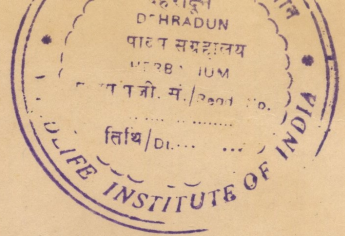 देहरादून
DEHRADUN
पादप संग्रहालय
HERBARIUM
पंजी. सं./Regd. No.
तिथि/Dt.
WILDLIFE INSTITUTE OF INDIA